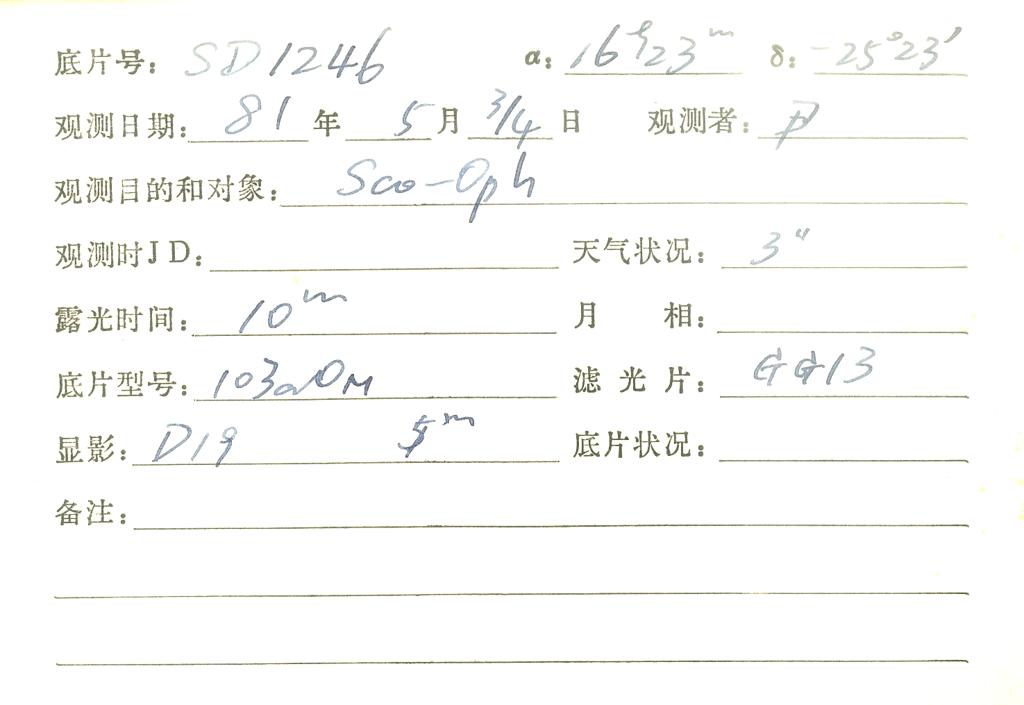 底片号: SD1246 α: 16h23m δ: -25°23′
观测日期: 81 年 5 月 3/4 日 观测者:
观测目的和对象: Sco-Oph
观测时JD: 天气状况: 3″
露光时间: 10m 月 相:
底片型号: 103aO 滤光片: GG13
显影: D19 5m 底片状况:
备注: